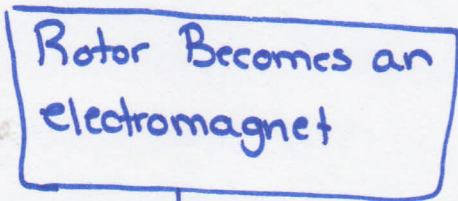 Rotor Becomes an
electromagnet